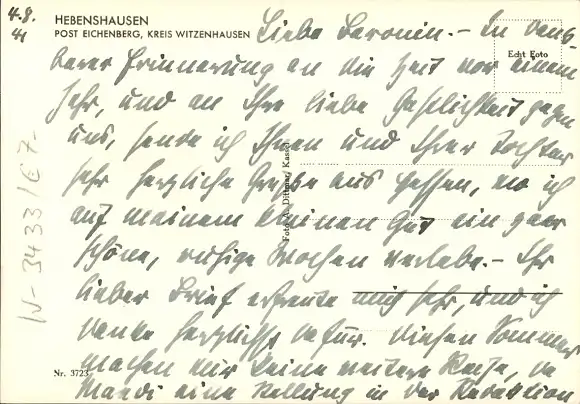 4.8.
41
HEBENSHAUSEN
POST EICHENBERG, KREIS WITZENHAUSEN
Echt Foto
Liebe Baronin. – In dank-
barer Erinnerung an die Zeit vor einem
Jahr, und an Ihre liebe Gastlichkeit gegen
uns, sende ich Ihnen und Ihrer Tochter
sehr herzliche Grüße aus Hessen, wo ich
auf meinem kleinen Gut ein paar
schöne, ruhige Wochen verlebe. – Ihr
lieber Brief erfreute mich sehr, und ich
danke herzlichst dafür. Diesen Sommer
machen wir keine weitere Reise, da
eine Stellung in der Redaktion
Foto A. Dittmar, Kassel
Nr. 3723
IV-3433/67-